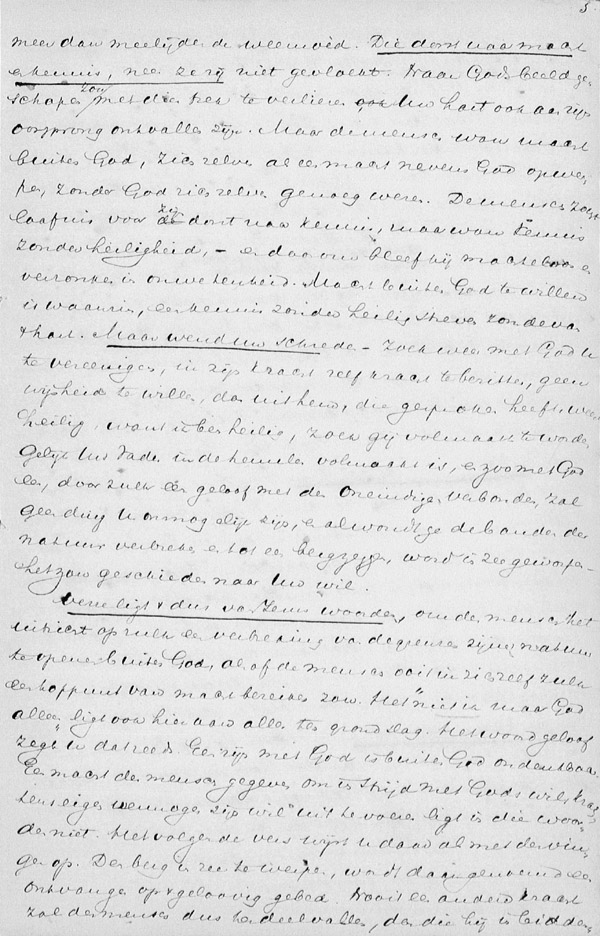 5
meer dan medelijden de weemoed. Die dorst naar macht
& kennis, nee ze zij niet gevloekt. Naar Gods beeld ge-
schapen zou met die trek te verliezen ook Uw hart ook aan zijn
oorsprong ontvallen zijn. Maar de mensch wou macht
buiten God, zich zelve al een macht nevens God opwer-
pen, zonder God zich zelve genoeg wezen. De mensch zocht
laafnis voor zijn dorst naar kennis, maar wou kennis
zonder heiligheid, – en daarom bleef hij machteloos en
verzonken in onwetendheid. Macht buiten God te willen
is waanzin, een kennis zonder heilig streven zonde van
't hart. Maar wend Uw schrede – zoek weer met God U
te vereenigen, in zijn kracht zelf kracht te bezitten, geen
wijsheid te willen, dan uit hem, die gesproken heeft: weest
heilig, want ik ben heilig, zoek gij volmaakt te worden
gelijk Uw Vader in de hemelen volmaakt is, en zoo met God
een, door zulk een geloof met den Oneindige verbonden, zal
geen ding U onmogelijk zijn, en al wondt ge de banden der
natuur verbreken en tot een berg zeggen, word in zee geworpen –
het zou geschieden naar Uw wil.
Verre ligt 't dus van Jezus woorden, om den mensch het
uitzicht op zulk een verbreking van de grenzen zijner natuur
te openen buiten God, als of de mensch ooit in zich zelf zulk
een toppunt van macht bereiken zou. Het "niet ik maar God
alles" ligt ook hier aan alles ten grondslag. Het woord geloof
zegt U dat reeds. Een zijn met God is buiten God ondenkbaar.
Een macht den mensch gegeven om in strijd met Gods wil, krach-
tens eigen vermogen zijn wil uit te voeren ligt in die woor-
den niet. Het volgende vers wijst U daar al met den vin-
ger op. Den berg in zee te werpen, wordt daar genoemd een
ontvangen op 't geloovig gebed. Nooit een andere kracht
zal den mensch dus ten deel vallen, dan die hij in bidden